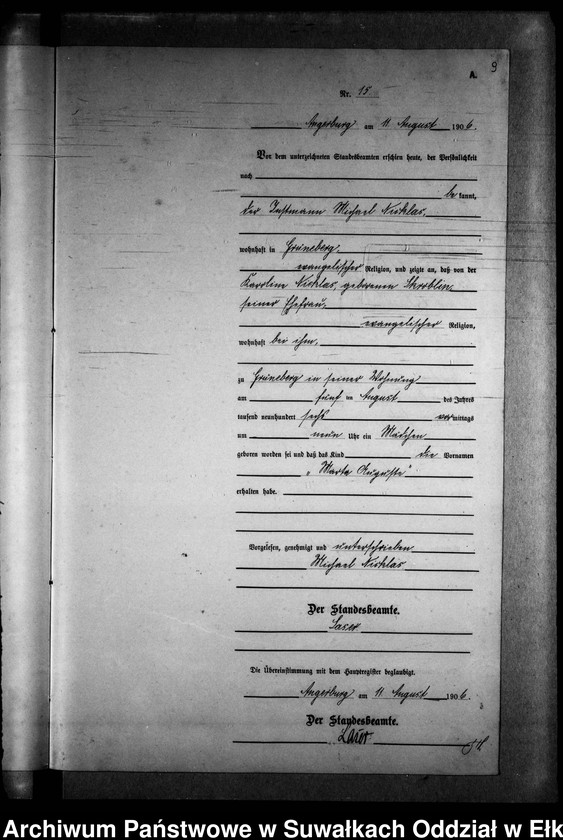 9
A.
Nr. 15.
Angerburg am 11 August 1906.
Vor dem unterzeichneten Standesbeamten erschien heute, der Persönlichkeit
nach
bekannt,
der Instmann Michael Nicklas,
wohnhaft in Grüneberg
evangelischer Religion, und zeigte an, daß von der
Karoline Nicklas, geborenen
seiner Ehefrau,
evangelischer Religion,
wohnhaft bei ihm,
zu Grüneberg in seiner Wohnung
am fünf ten August des Jahres
tausend neunhundert sechs vormittags
um neun Uhr ein Mädchen
geboren worden sei und daß das Kind die Vornamen
„Marta Auguste"
erhalten habe.
Vorgelesen, genehmigt und unterschrieben
Michael Nicklas
Der Standesbeamte.
Die Übereinstimmung mit dem Hauptregister beglaubigt.
Angerburg am 11 August 1906.
Der Standesbeamte.
Archiwum Państwowe w Suwałkach Oddział w Ełk